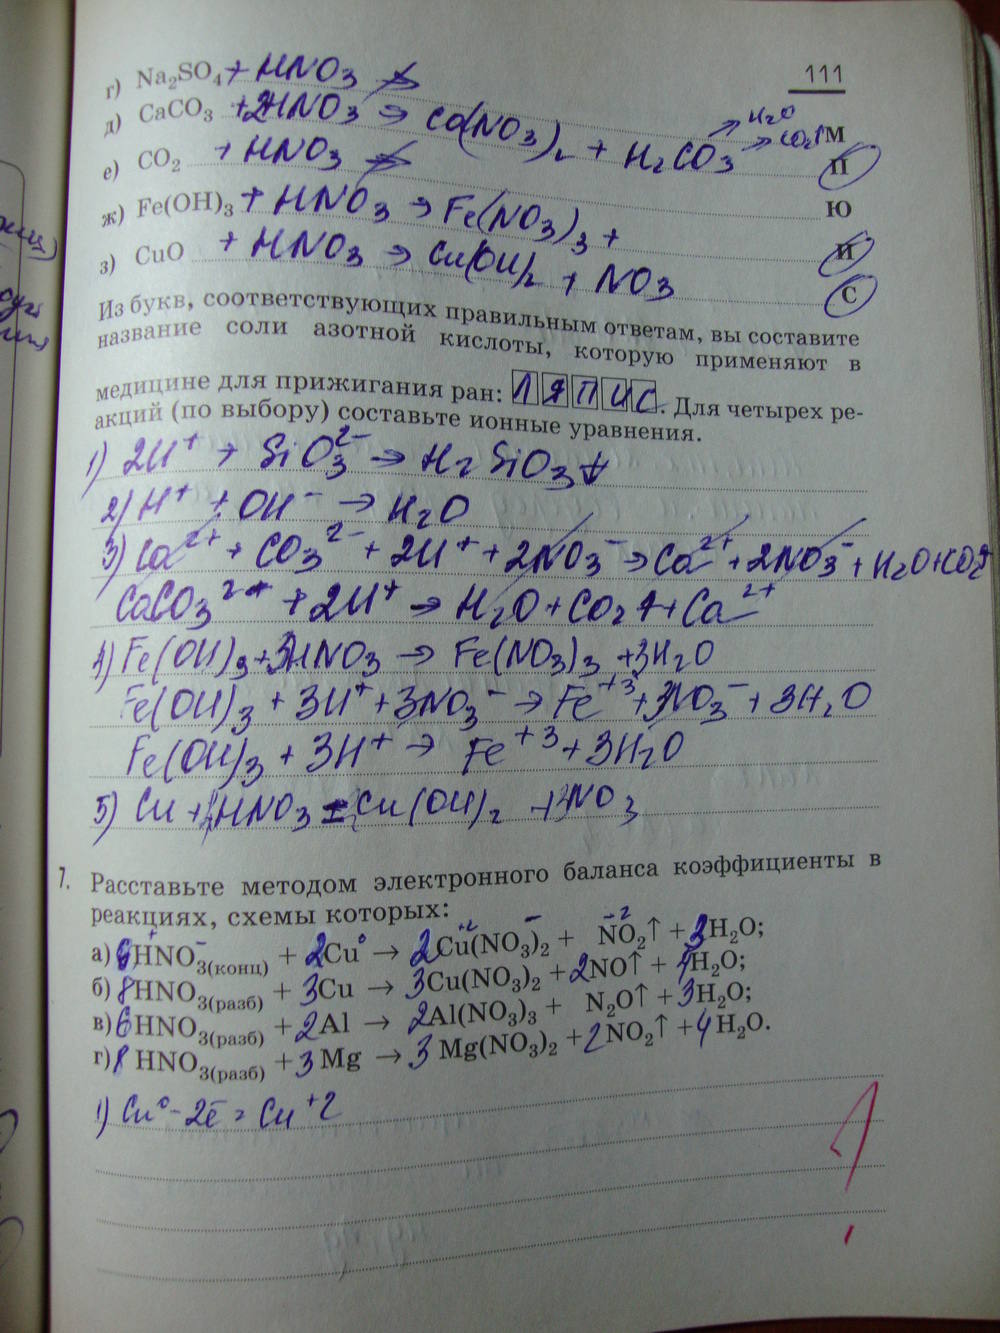 111
г) Na₂SO₄ + HNO₃ ↛
д) CaCO₃ + 2HNO₃ → Ca(NO₃)₂ + H₂CO₃ → H₂O → CO₂↑ М
е) CO₂ + HNO₃ ↛ П
ж) Fe(OH)₃ + HNO₃ → Fe(NO₃)₃ + Ю
з) CuO + HNO₃ → Cu(OH)₂ + NO₃ И
С
Из букв, соответствующих правильным ответам, вы составите
название соли азотной кислоты, которую применяют в
медицине для прижигания ран: ЛЯПИС. Для четырех ре-
акций (по выбору) составьте ионные уравнения.
1) 2H⁺ + SiO₃²⁻ → H₂SiO₃↓
2) H⁺ + OH⁻ → H₂O
3) Ca²⁺ + CO₃²⁻ + 2H⁺ + 2NO₃⁻ → Ca²⁺ + 2NO₃⁻ + H₂O + CO₂↑
CaCO₃²⁺ + 2H⁺ → H₂O + CO₂↑ + Ca²⁺
4) Fe(OH)₃ + 3HNO₃ → Fe(NO₃)₃ + 3H₂O
Fe(OH)₃ + 3H⁺ + 3NO₃⁻ → Fe⁺³ + 3NO₃⁻ + 3H₂O
Fe(OH)₃ + 3H⁺ → Fe⁺³ + 3H₂O
5) Cu + HNO₃ Cu(OH)₂ + NO₃
7. Расставьте методом электронного баланса коэффициенты в
реакциях, схемы которых:
а) 6HNO₃(конц) + 2Cu⁰ → 2Cu(NO₃)₂ + NO₂↑ + 3H₂O;
б) 8HNO₃(разб) + 3Cu → 3Cu(NO₃)₂ + 2NO↑ + 4H₂O;
в) 6HNO₃(разб) + 2Al → 2Al(NO₃)₃ + N₂O↑ + 3H₂O;
г) 8HNO₃(разб) + 3Mg → 3Mg(NO₃)₂ + 2NO₂↑ + 4H₂O.
1) Cu⁰ - 2ē = Cu⁺²